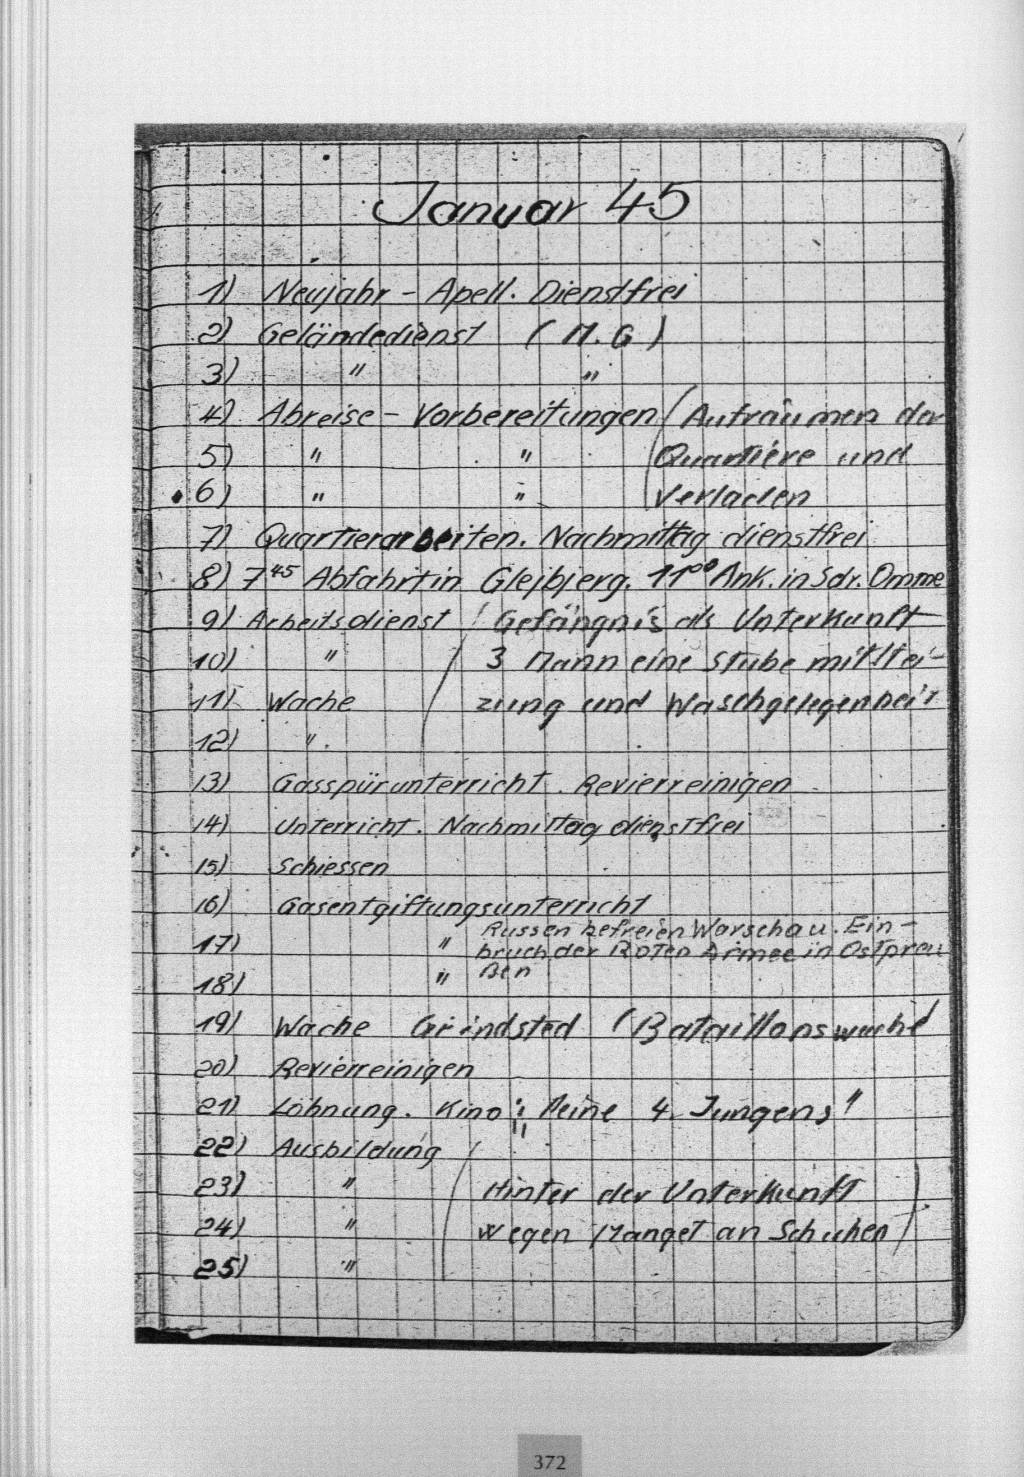 Januar 45
1) Neujahr - Apell. Dienstfrei
2) Geländedienst (M. G)
3) " "
4) Abreise - Vorbereitungen (Aufräumen der
5) " " Quartiere und
6) " " Verladen
7) Quartierarbeiten. Nachmittag dienstfrei
8) 7⁴⁵ Abfahrt in Glejbjerg. 11⁰⁰ Ank. in Sdr. Omme
9) Arbeitsdienst ( Gefängnis als Unterkunft
10) " 3 Mann eine Stube mit Hei-
11) Wache zung und Waschgelegenheit
12) ".
13) Gasspürunterricht. Revierreinigen
14) Unterricht. Nachmittag dienstfrei
15) Schiessen
16) Gasentgiftungsunterricht
Russen befreien Warschau. Ein-
17) " bruch der Roten Armee in Ostpreu
18) " ßen
19) Wache Grindsted (Bataillonswache)
20) Revierreinigen
21) Löhnung. Kino: "Meine 4 Jungens"
22) Ausbildung
23) " (Hinter der Unterkunft
24) " wegen Mangel an Schuhen)
25) "
372